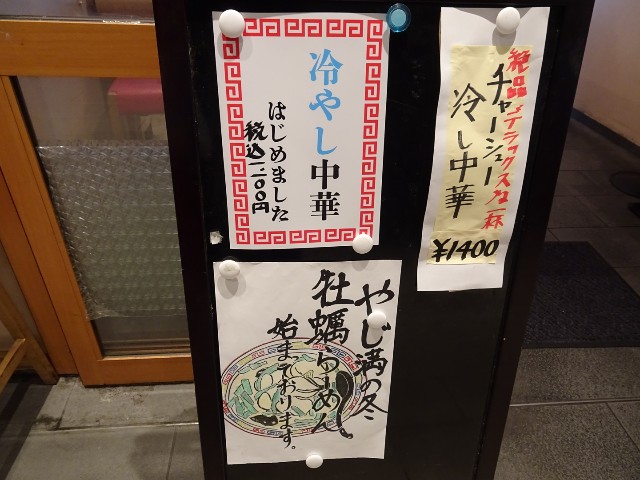 冷やし中華
はじめました
税込1,100円
絶品!デラックスな一杯
チャーシュー
冷し中華
¥1400
やじ満の冬
牡蠣らーめん
始まております。